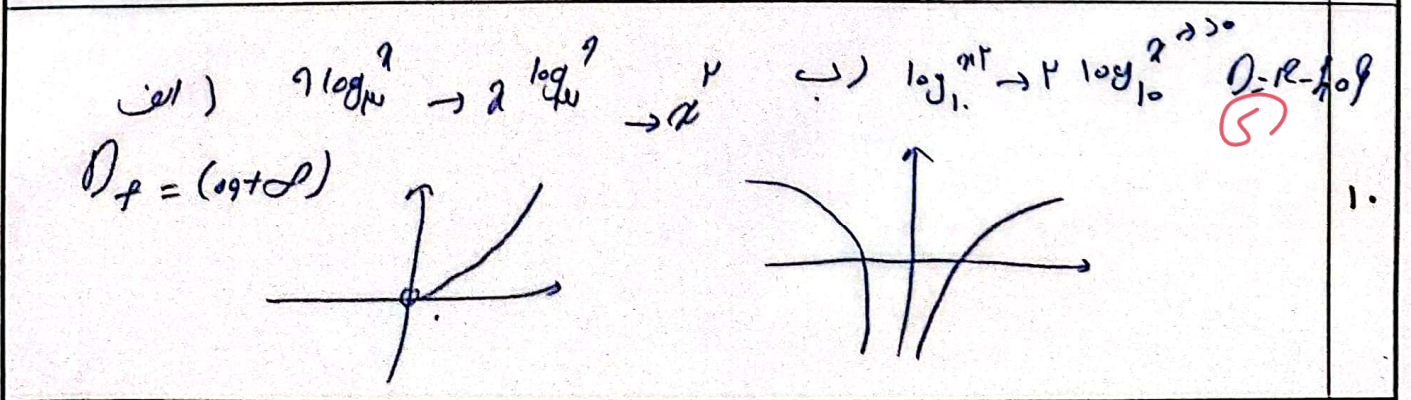 الف) ۹ log₃ˣ → x log₃⁹ → x²
ب) log₁₀ x² → ۲ log₁₀ x x>0 D = R - {0}
D_f = (0, +∞)
۱۰